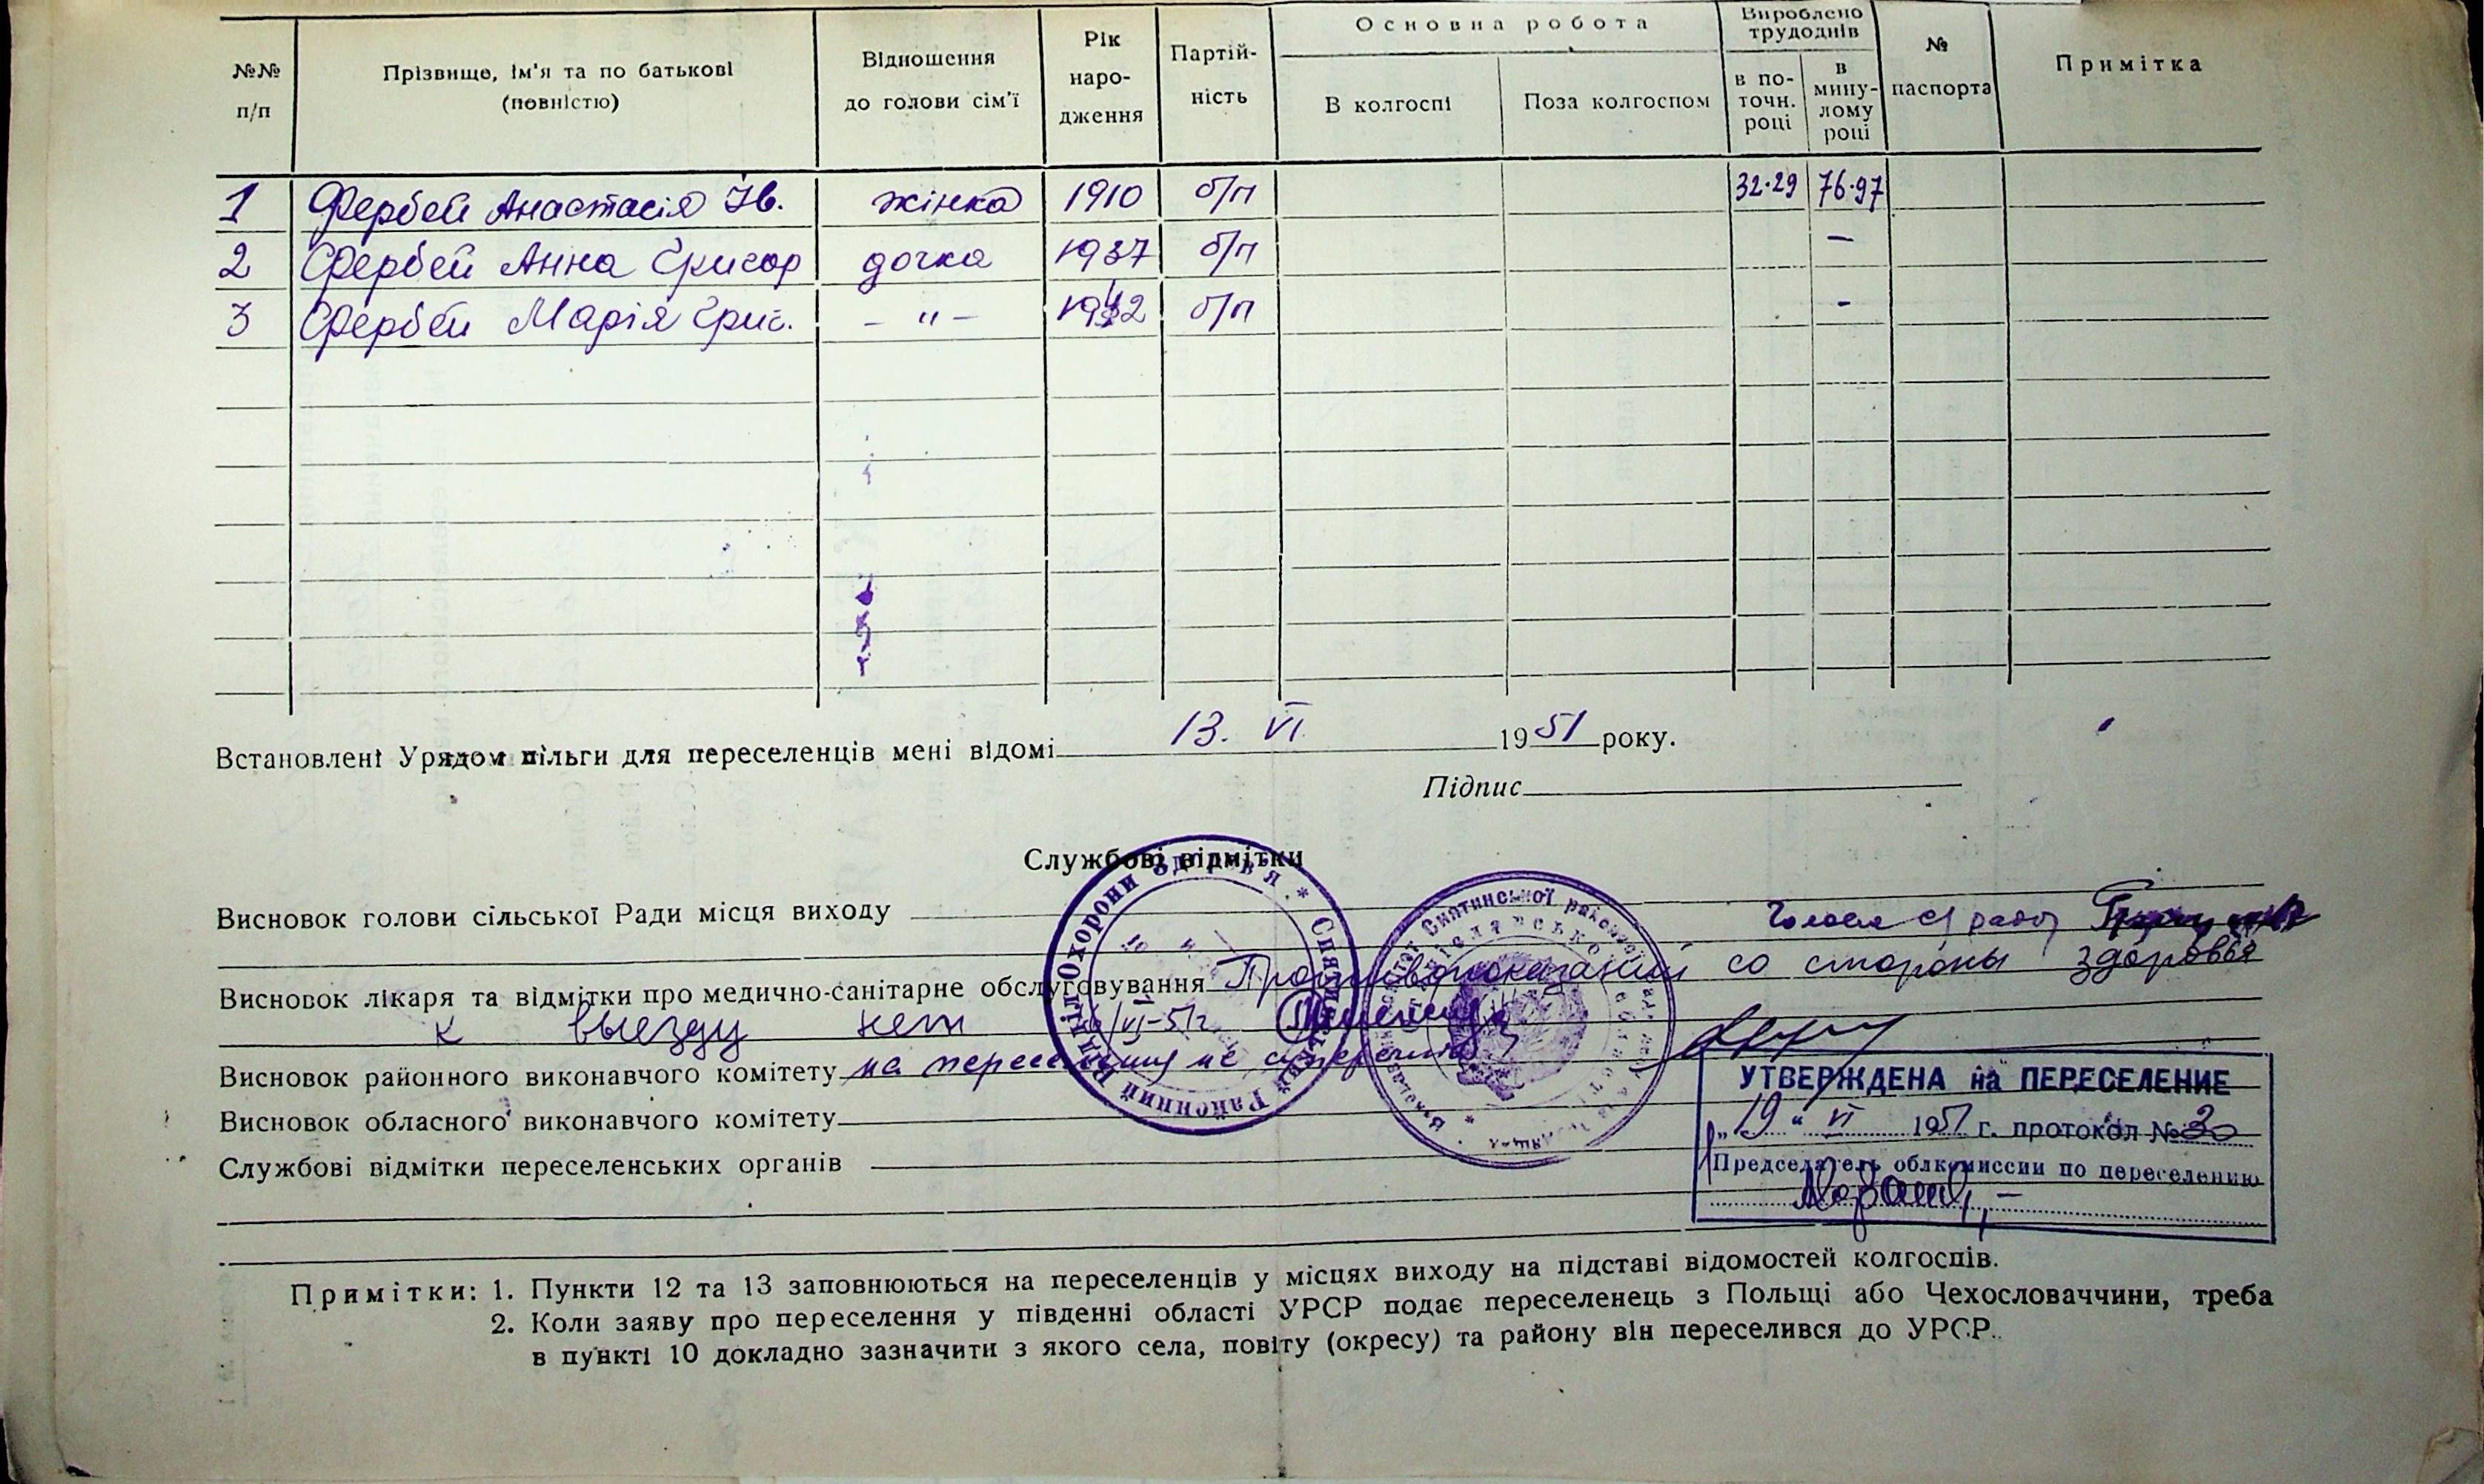 №№ п/п
Прізвище, ім'я та по батькові (повністю)
Відношення до голови сім'ї
Рік наро- дження
Партій- ність
Основна робота
В колгоспі
Поза колгоспом
Вироблено трудоднів
в по- точн. році
в мину- лому році
№ паспорта
Примітка
1 Фербей Анастасія Ів. жінка 1910 б/п 32·29 76·97
2 Фербей Анна Григор дочка 1937 б/п —
3 Фербей Марія Григ. — " — 1942 б/п -
Встановлені Урядом пільги для переселенців мені відомі 13. VI 1951 року.
Підпис
Службові відмітки
Висновок голови сільської Ради місця виходу Голова с/ ради
Висновок лікаря та відмітки про медично-санітарне обслуговування Противопоказаний со стороны здоровья
к выезду нет /VI-51г.
Висновок районного виконавчого комітету на переселення не
Висновок обласного виконавчого комітету
Службові відмітки переселенських органів
Відділ Охорони Здоров'я * Снятинський Районний
Снятинської районної
УТВЕРЖДЕНА на ПЕРЕСЕЛЕНИЕ
„19" VI 1951 г. протокол № 30
Председатель облкомиссии по переселению
Примітки: 1. Пункти 12 та 13 заповнюються на переселенців у місцях виходу на підставі відомостей колгоспів.
2. Коли заяву про переселення у південні області УРСР подає переселенець з Польщі або Чехословаччини, треба
в пункті 10 докладно зазначити з якого села, повіту (окресу) та району він переселився до УРСР.